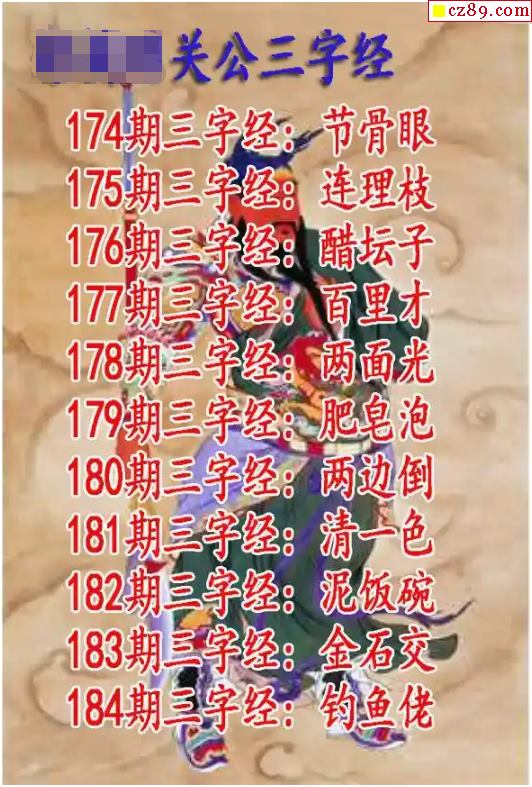 cz89.com
关公三字经
174期三字经：节骨眼
175期三字经：连理枝
176期三字经：醋坛子
177期三字经：百里才
178期三字经：两面光
179期三字经：肥皂泡
180期三字经：两边倒
181期三字经：清一色
182期三字经：泥饭碗
183期三字经：金石交
184期三字经：钓鱼佬